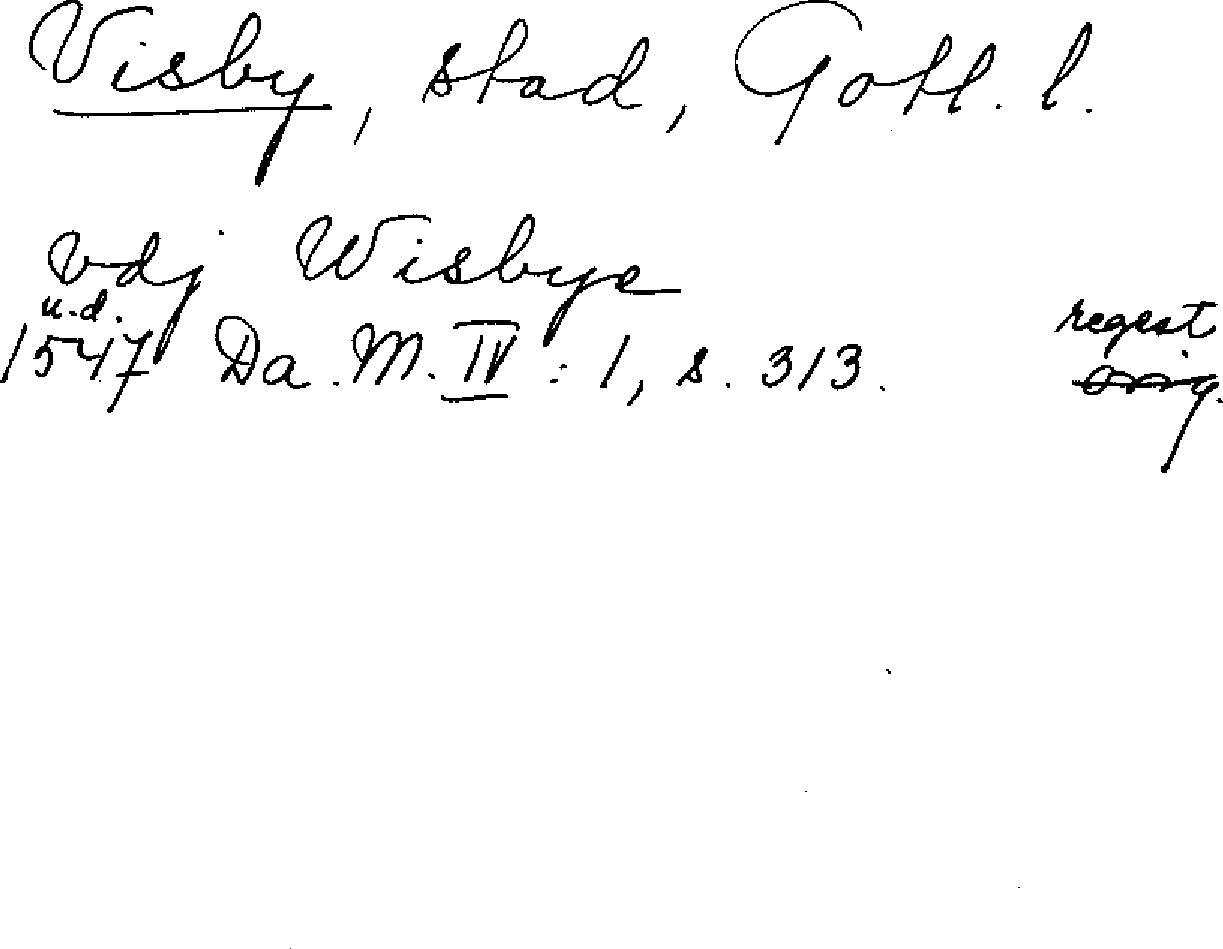 Visby, stad, Gotl. l.
vdj Wisbye
u.d.
1547 Da. M. IV : 1, s. 313.
regest
orig.